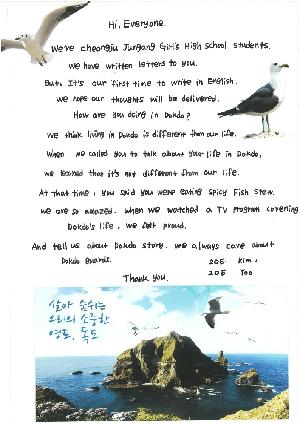 Hi, Everyone.
We're cheongju Jungang Girl's High school students.
We have written letters to you.
But, It's our first time to write in English.
We hope our thoughts will be delivered.
How are you doing in Dokdo?
We think living in Dokdo is different than our life.
When we called you to talk about your life in Dokdo,
we learned that it's not different from our life.
At that time, you said you were eating spicy fish stew.
We are so amazed. When we watched a TV program covering
Dokdo's life, we felt proud.
And tell us about Dokdo story. We always care about
Dokdo guards.
205 Kim.
Thank you.
205 Yoo
살아 숨쉬는
우리의 소중한
영토, 독도